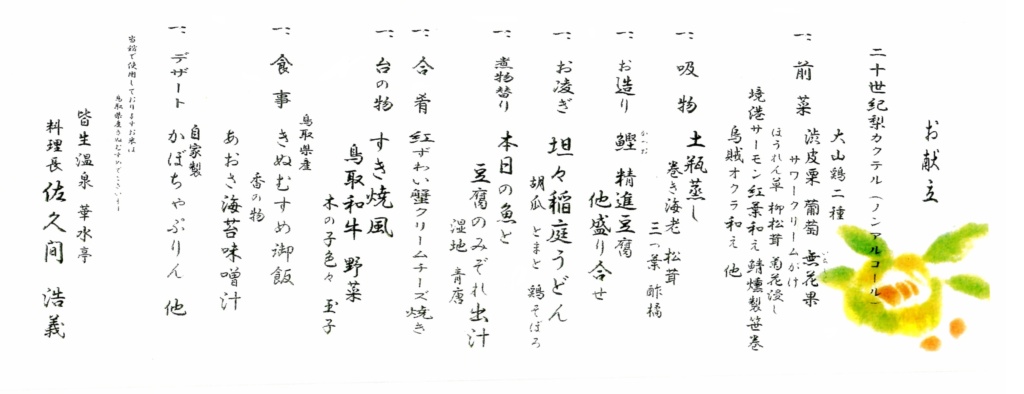 お献立
二十世紀梨カクテル(ノンアルコール)
一: 前菜
大山鶏二種
渋皮栗 葡萄 無花果
サワークリームがけ
ほうれん草 柳松茸 菊花浸し
境港サーモン紅葉和え 鯖燻製笹巻
烏賊オクラ和え 他
一: 吸物 土瓶蒸し
巻き海老 松茸
三つ葉 酢橘
一: お造り 鰹 精進豆腐
かつお
他盛り合せ
一: お凌ぎ 坦々稲庭うどん
胡瓜 とまと 鶏そぼろ
一: 煮物替り 本日の魚と
豆腐のみぞれ出汁
湿地 青唐
一: 合肴 紅ずわい蟹クリームチーズ焼き
一: 台の物 すき焼風
鳥取和牛 野菜
木の子色々 玉子
一: 食事 鳥取県産
きぬむすめ御飯
香の物
あおさ海苔味噌汁
一: デザート 自家製
かぼちゃぷりん 他
当館で使用しておりますお米は
鳥取県産きぬむすめでございます
皆生温泉 華水亭
料理長 佐久間 浩義